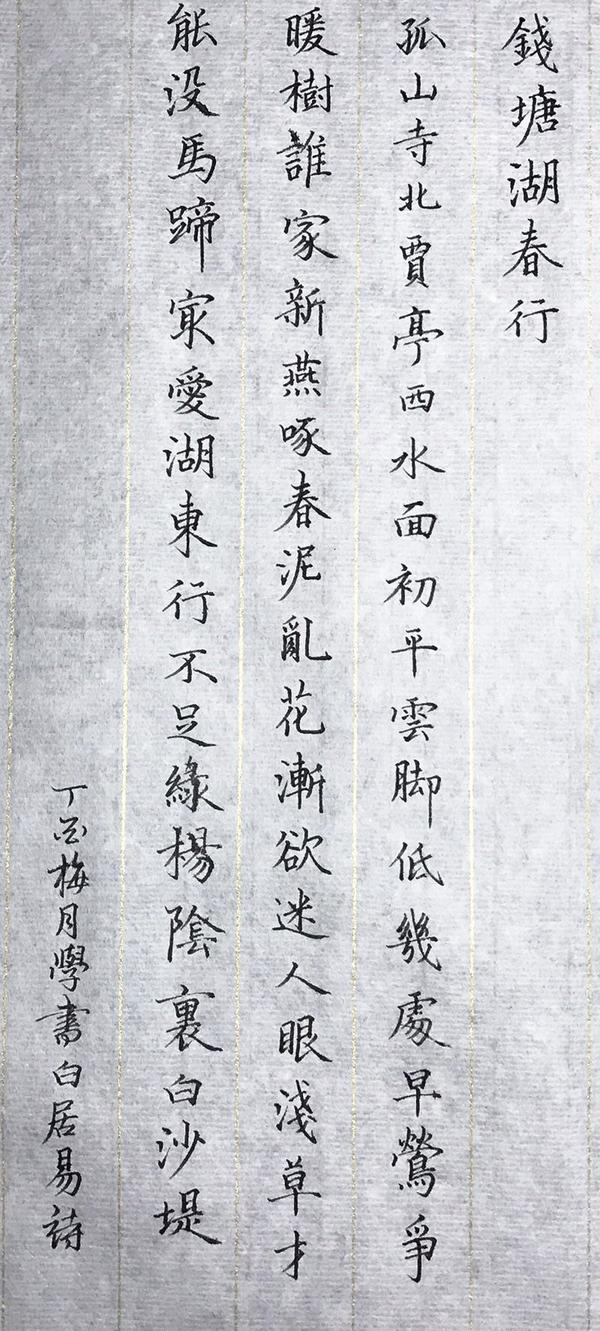 錢塘湖春行
孤山寺北賈亭西水面初平雲脚低幾處早鶯爭
暖樹誰家新燕啄春泥亂花漸欲迷人眼淺草才
能没馬蹄㝡愛湖東行不足綠楊陰裏白沙堤
丁酉梅月學書白居易詩